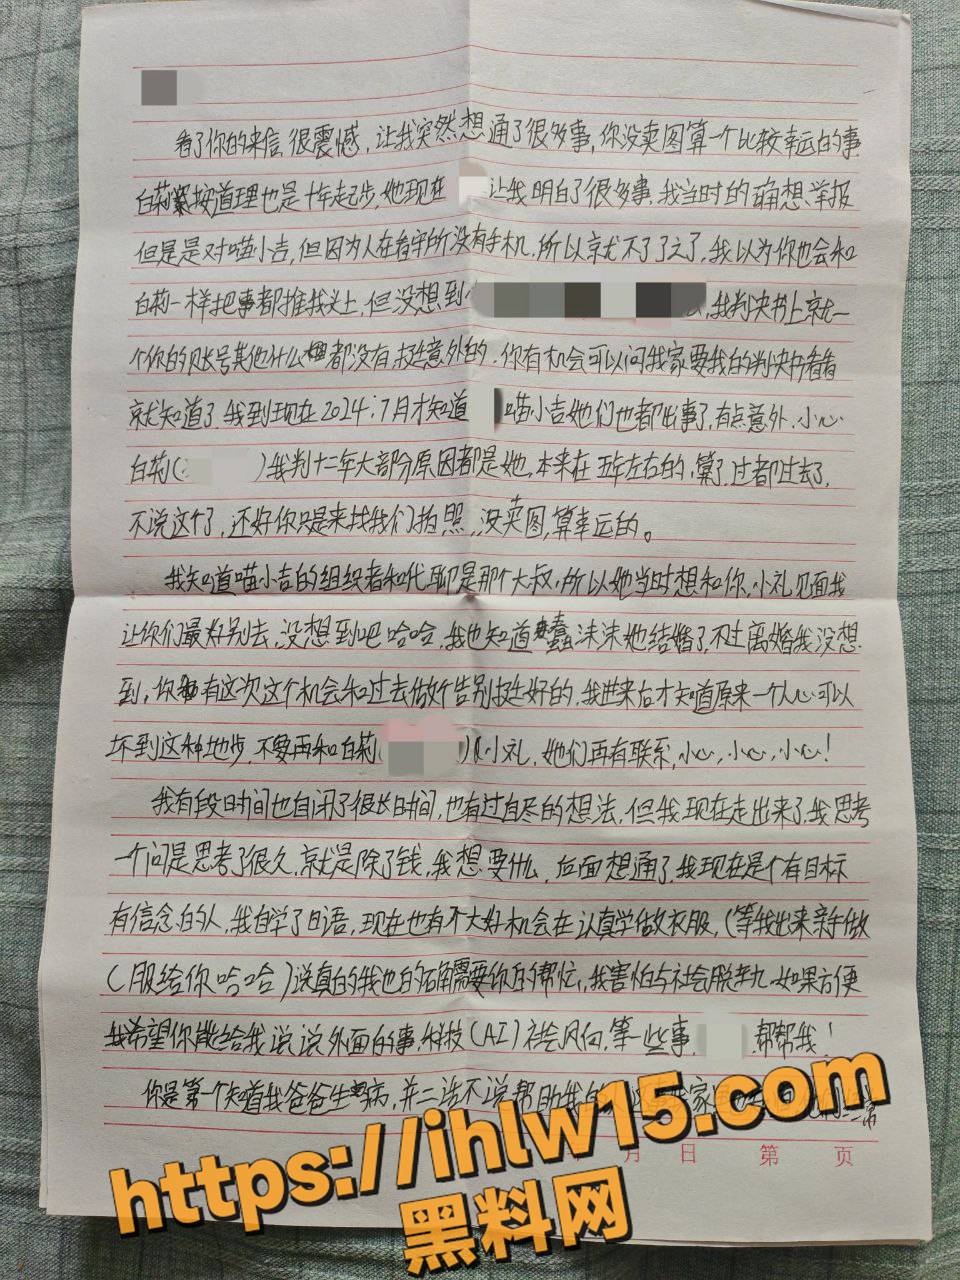 看了你的来信很震憾，让我突然想通了很多事，你没卖图算一个比较幸运的事
白莉紧按道理也是十年起步，她现在 让我明白了很多事，我当时的确想举报
但是是对喵小吉，但因为人在看守所没有手机，所以就不了了之了，我以为你也会和
白莉一样把事都推我头上，但没想到 我判决书上就一
个你的账号其他什么都没有，挺意外的，你有机会可以问我家要我的判决书看看
就知道了，我到现在2024；7月才知道 喵小吉她们也都出事了，有点意外，小心
白莉( )我判十二年大部分原因都是她，本来在五年左右的，算了，过都过去了，
不说这个了，还好你只是来找我们拍照，没卖图，算幸运的。
我知道喵小吉的组织者和代聊是那个大叔，所以她当时想和你，小礼见面我
让你们最好别去，没想到吧哈哈，我也知道蠢沫沫她结婚了，不过离婚我没想
到，你能有这次这个机会和过去做个告别挺好的，我进来后才知道原来一个人心可以
坏到这种地步，不要再和白莉( )小礼，她们再有联系，小心，小心，小心！
我有段时间也自闭了很长时间，也有过自尽的想法，但我现在走出来了，我思考
一个问是思考了很久，就是除了钱，我想要什么，后面想通了，我现在是个有目标
有信念的人，我自学了日语，现在也有不大好机会在认真学做衣服，(等我出来亲手做
(服给你哈哈)说真的我也的确需要你的帮忙，我害怕与社会脱轨，如果方便
我希望你能给我说说外面的事，科技(AI)社会风向，等一些事， 帮帮我！
你是第一个知道我爸爸生病，并二话不说帮助我的人
年 月 日 第 页
https://ihlw15.com
黑料网